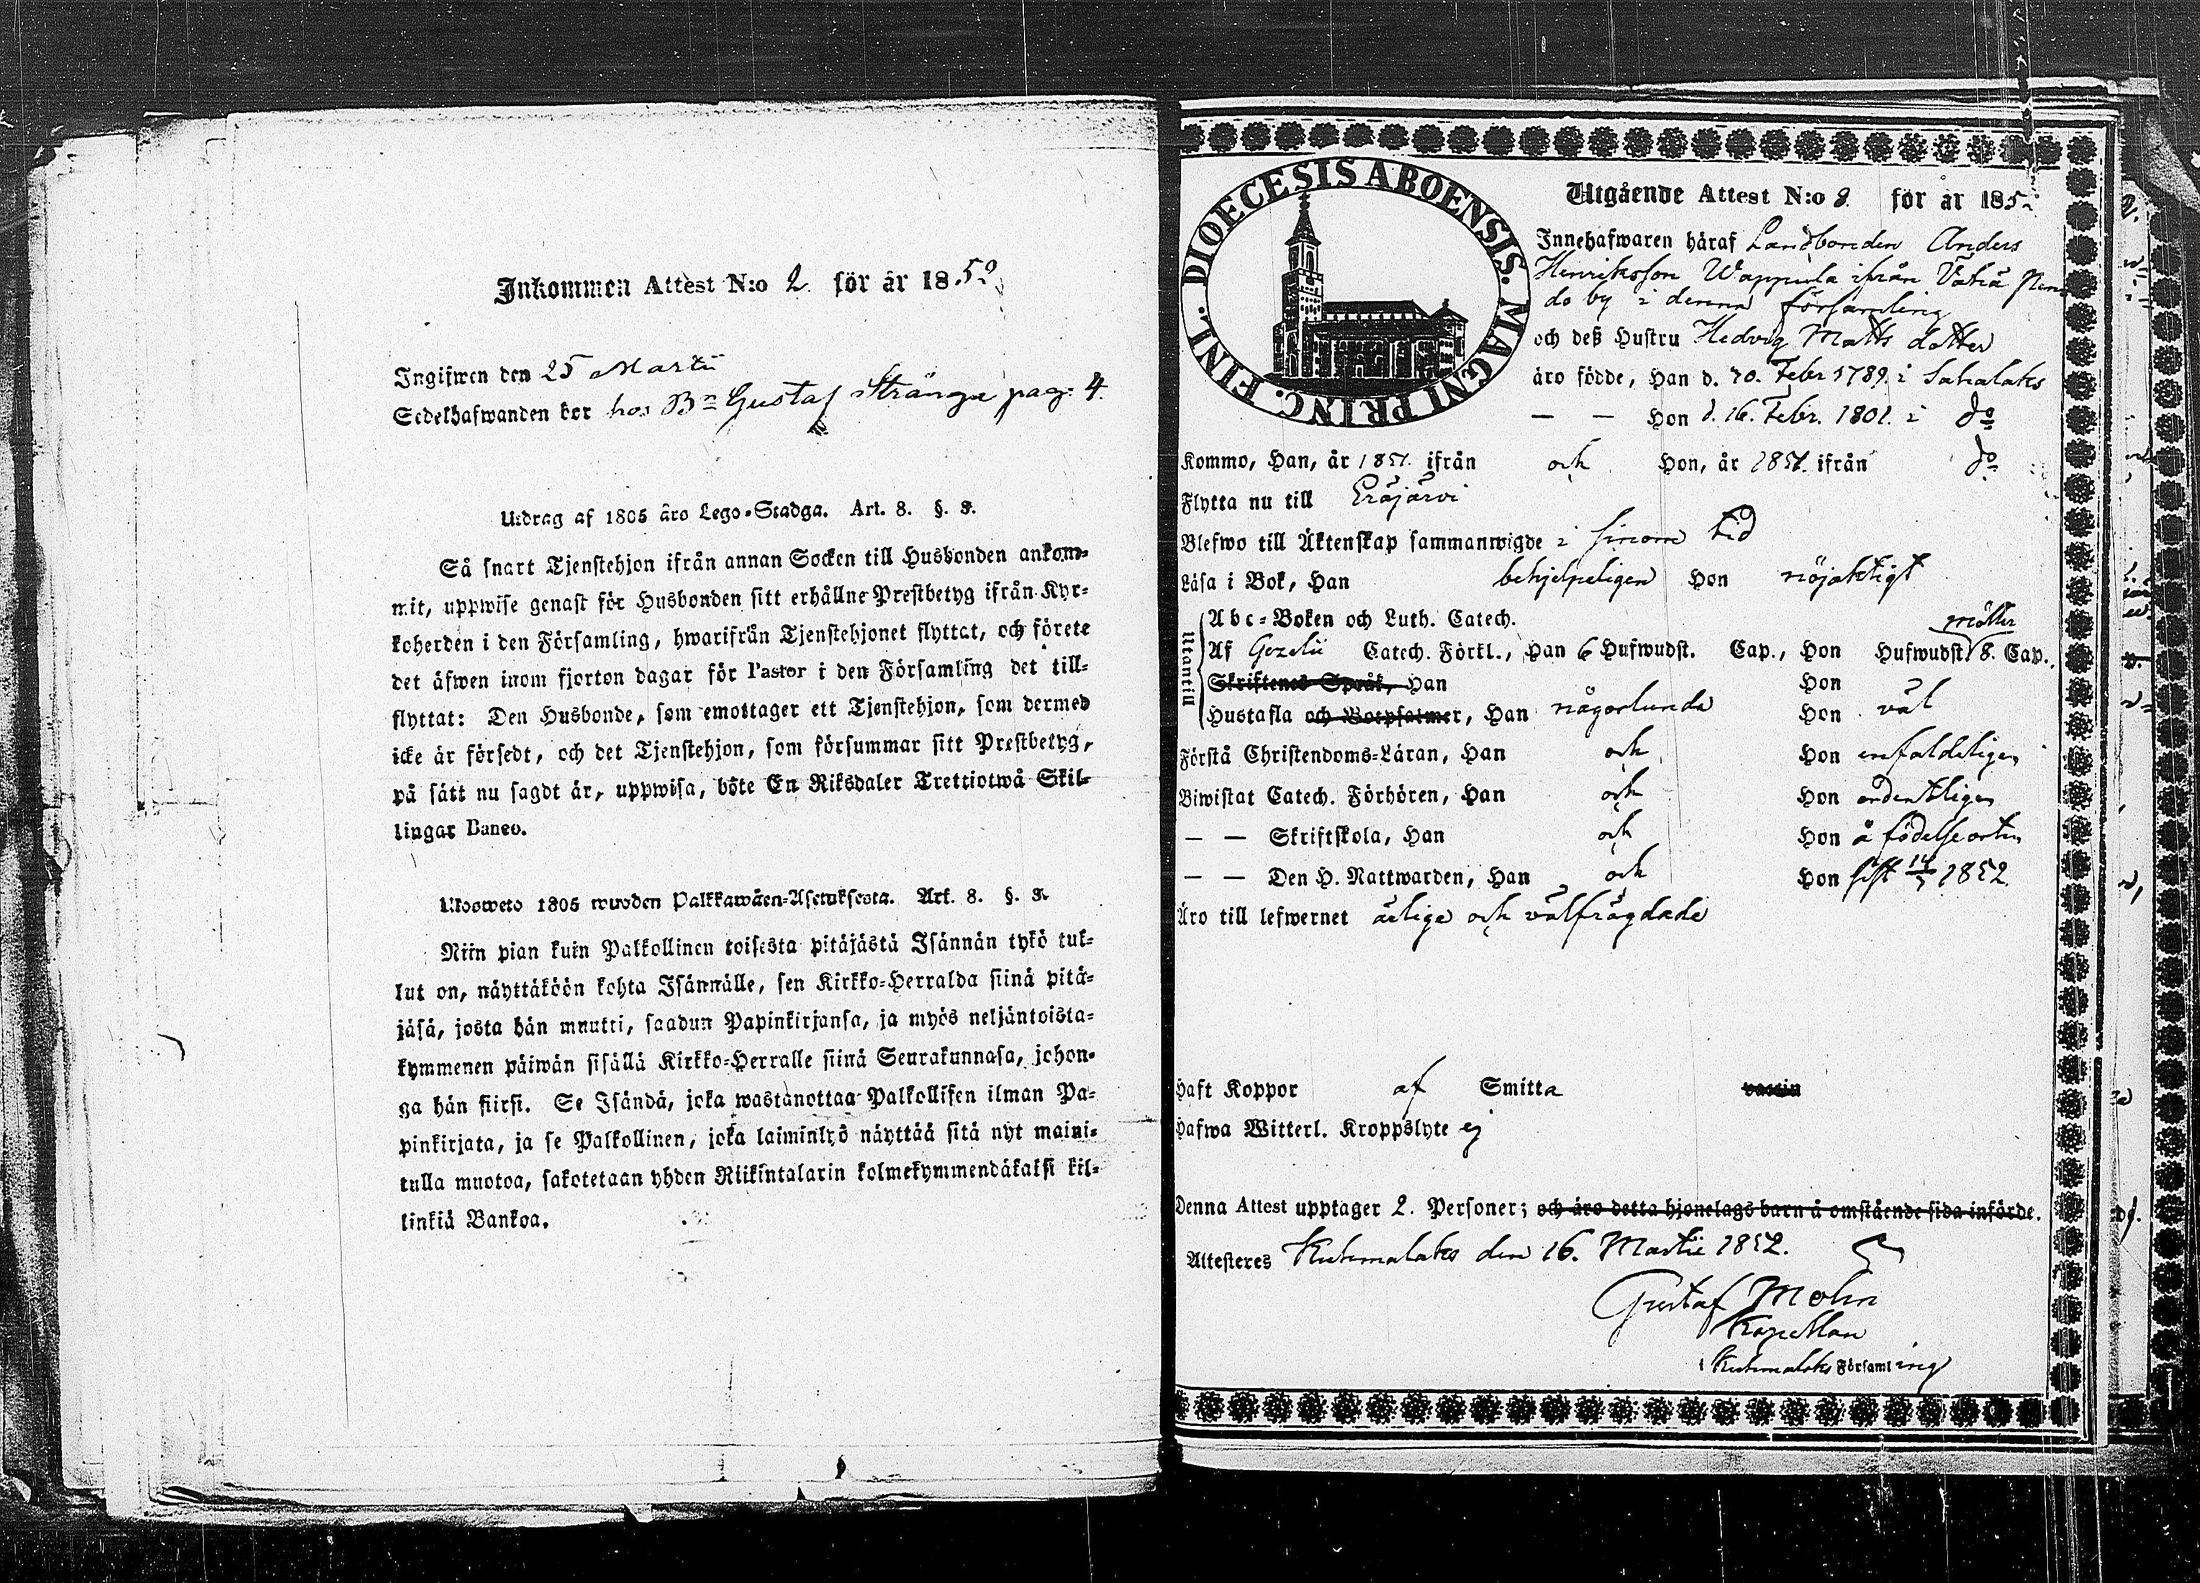 Inkommen Attest N:o 2 för år 1852
Ingifwen den 25 Martii
Sedelhafwanden bor hos Bn Gustaf Stränga pag: 4.
Utdrag af 1805 års Lego-Stadga. Art. 8. §. 3.
Så snart Tjenstehjon ifrån annan Socken till Husbonden ankom-
mit, uppwise genast för Husbonden sitt erhållne Prestbetyg ifrån Kyr-
koherden i den Församling, hwarifrån Tjenstehjonet flyttat, och förete
det äfwen inom fjorton dagar för Pastor i den Församling det till-
flyttat: Den Husbonde, som emottager ett Tjenstehjon, som dermed
icke är försedt, och det Tjenstehjon, som försummar sitt Prestbetyg,
på sätt nu sagdt är, uppwisa, böte En Riksdaler Trettiotwå Skil-
lingar Banco.
Ulosweto 1805 wuoden Palkkawäen-Asetuksesta. Art. 8. §. 3.
Niin pian kuin Palkollinen toisesta pitäjästä Isännän tykö tul-
lut on, näyttäköön kohta Isännälle, sen Kirkko-Herralda siinä pitä-
jäsä, josta hän muutti, saadun Papinkirjansa, ja myös neljäntoista-
kymmenen päiwän sisällä Kirkko-Herralle siinä Seurakunnasa, johon-
ga hän siirsi. Se Isändä, joka wastanottaa Palkollisen ilman Pa-
pinkirjata, ja se Palkollinen, joka laiminlyö näyttää sitä nyt maini-
tulla muotoa, sakotetaan yhden Riikintalarin kolmekymmendäkaksi kil-
linkiä Bankoa.
DIOECESIS ABOENSIS. MAGNI PRINC. FINL.
Utgående Attest N:o 2 för år 1852
Innehafwaren häraf Landbonden Anders
Henriksson Wappula ifrån Vähä Pen
do by i denna församling
och deß Hustru Hedvig Matts dotter
äro födde, Han d. 20. Febr 1789. i Sahalaks
— — Hon d. 16. Febr. 1801. i do
Kommo, Han, år 1851. ifrån och Hon, år 1851. ifrån do
Flytta nu till Eräjärvi
Blefwo till Äktenskap sammanwigde i sinom tid
Läsa i Bok, Han behjelpeligen Hon nöjaktigt
Utantill
Abc-Boken och Luth. Catech.
Af Gezelii Catech. Förkl., Han 6 Hufwudst. Cap., Hon Hufwudst. 8. Cap.
Skriftenes Språk, Han Hon
Hustafla och Botpsalmer, Han någorlunda Hon väl
Förstå Christendoms-Läran, Han och Hon enfaldeligen
Biwistat Catech. Förhören, Han och Hon ordentligen
— — Skriftskola, Han och Hon å födelseorten
— — Den H. Nattwarden, Han och Hon sist 14/3 1852
Äro till lefwernet ärlige och välfrägdade
Haft Koppor af Smitta vaccin
Hafwa Witterl. Kroppslyte ej
Denna Attest upptager 2. Personer; och äro detta hjonelags barn å omstående sida införde.
Attesteres Kuhmalaks den 16. Martii 1852.
Gustaf Molin
Kapellan
i Kuhmalaks Församling